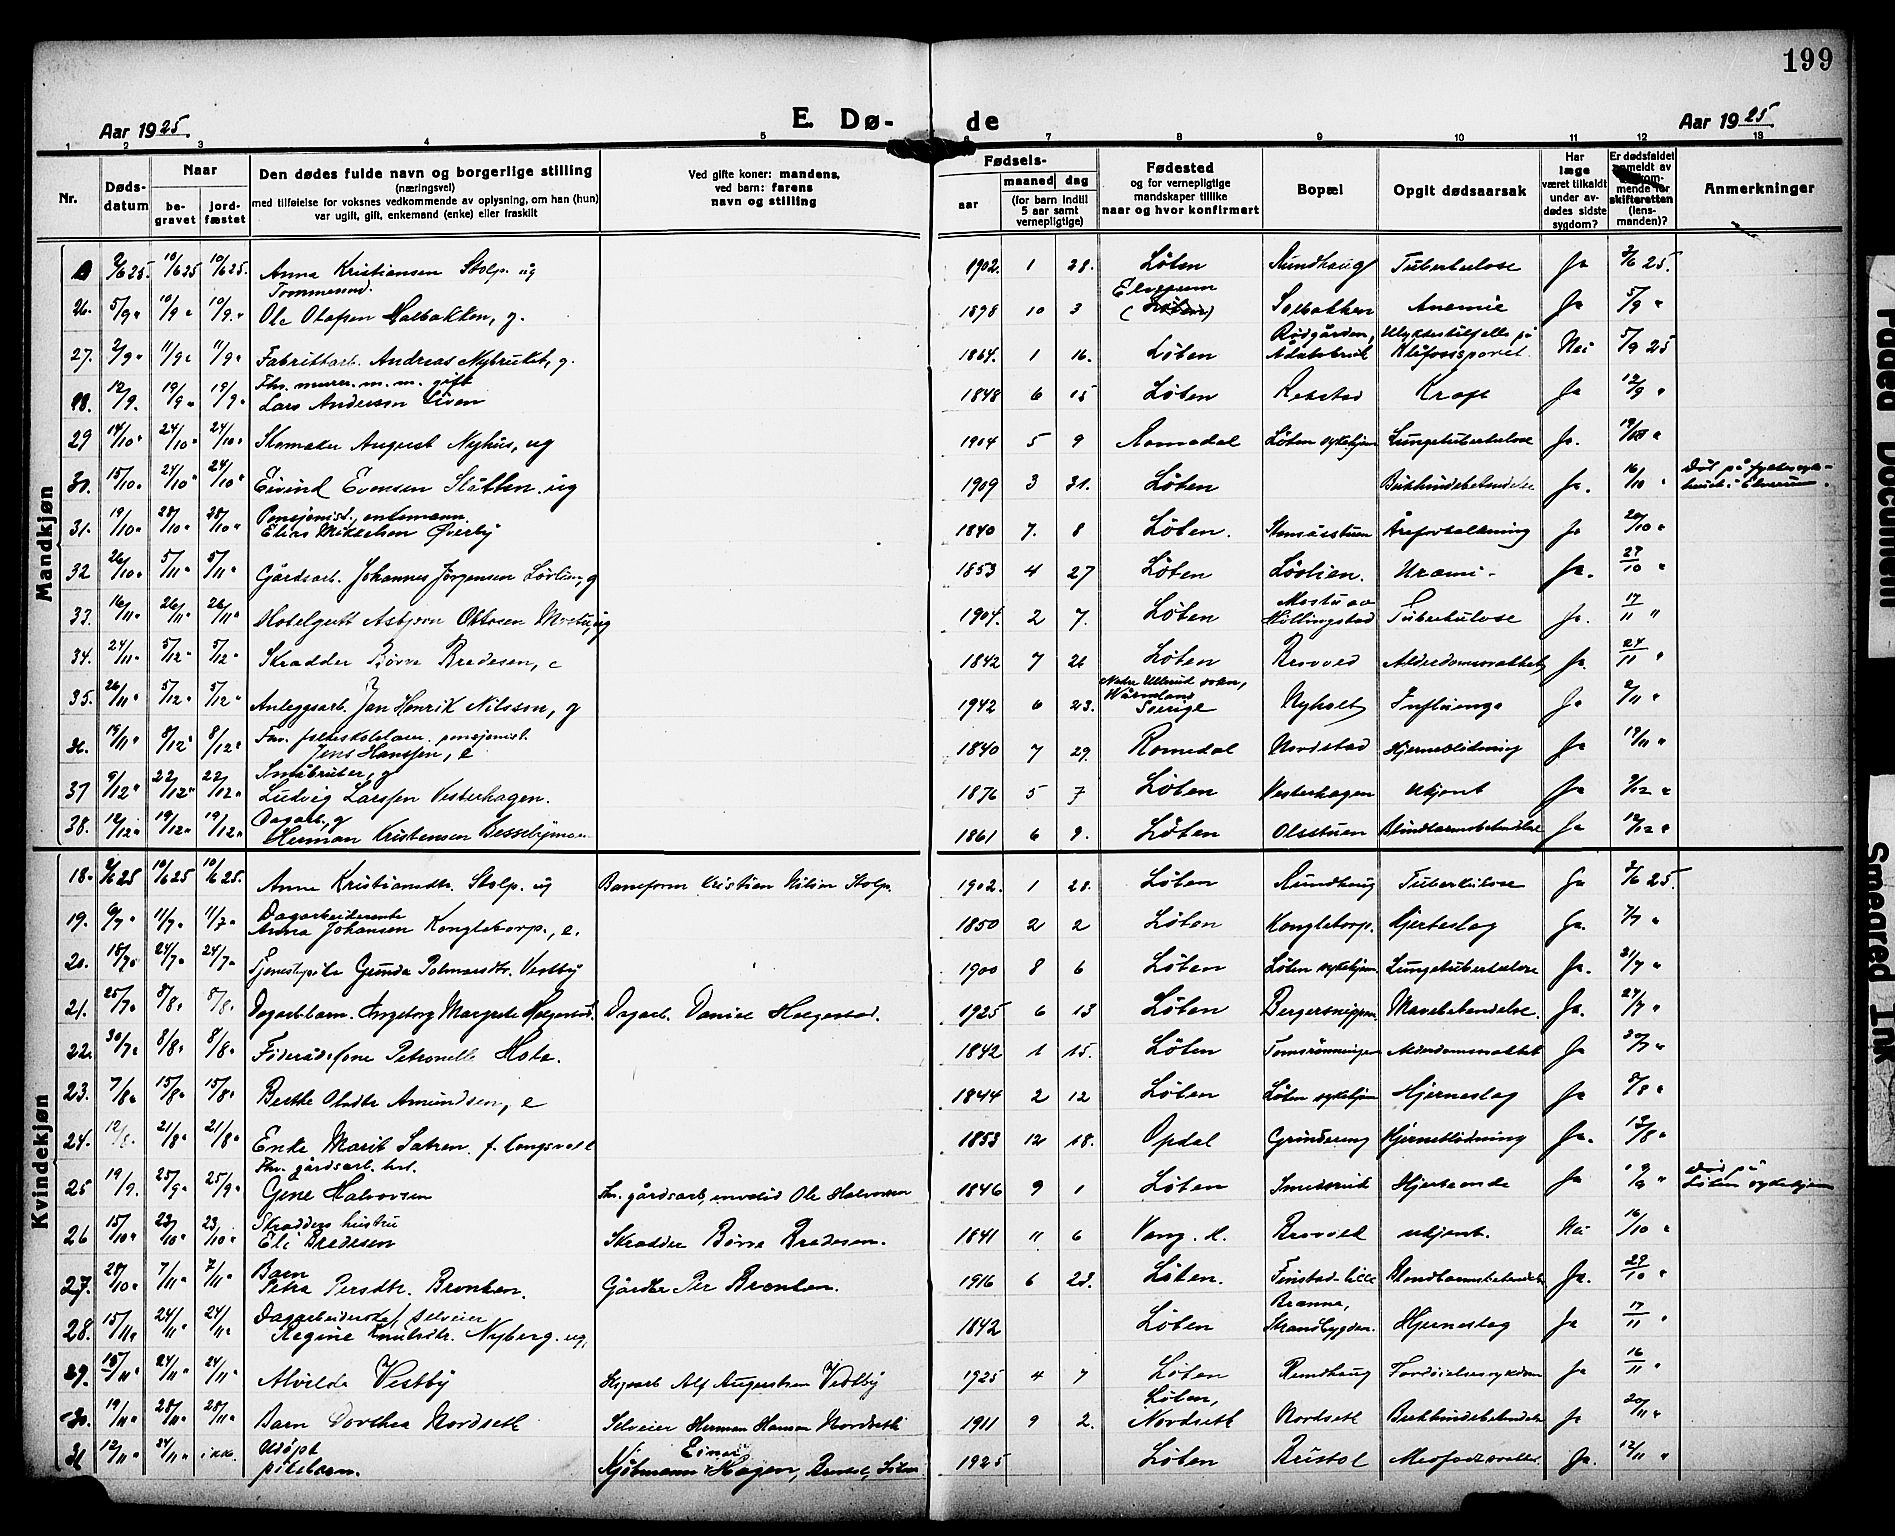 199
Aar 1925.
E. Dø-
de
Aar 1925.
1 2 3 4 5 6 7 8 9 10 11 12 13
Nr.
Døds-
datum
Naar
be-
gravet
jord-
fæstet
Den dødes fulde navn og borgerlige stilling
(næringsvei)
med tilføielse for voksnes vedkommende av oplysning, om han (hun)
var ugift, gift, enkemand (enke) eller fraskilt
Ved gifte koner: mandens,
ved barn: farens
navn og stilling
Fødsels-
aar
maaned
dag
(for barn indtil
5 aar samt
vernepligtige)
Fødested
og for vernepligtige
mandskaper tillike
naar og hvor konfirmert
Bopæl
Opgit dødsaarsak
Har
læge
været tilkaldt
under av-
dødes sidste
sygdom?
Er dødsfaldet
anmeldt av
mende for
skifteretten
(lens-
manden)?
Anmerkninger
Mandkjøn
10/6 25 10/6 25. Anna Kristiansen Stolp. ug 1902. 1 28. Løten Rundhaug Tuberkulose Ja 25.
26. 5/9 " 10/9 " 10/9. " Tømmermd.
Ole Olafsen Solbakken, g. 1898 10 3 Elverum
(Løten) Solbakken Anemie Ja 5/9 "
27. 2/9 " 11/9 " 11/9 " Fabrikkarb. Andreas Nybruket, g. 1864. 1 16. Løten Rødgården,
Ådalsbruk Ulykkestilfelle på
Klæfossporet. Nei 5/9 25
28. 12/9. 19/9 " 19/9 " Fhv. murer. m. m. gift
Lars Andersen Liven 1848 6 15 Løten Rokstad Kræft Ja 12/9 "
29 14/10 " 24/10 " 24/10 " Skomaker August Nyhus, ug 1904 5 9 Romedal Løten sykehjem Lungetuberkulose Ja.
30. 15/10 " 24/10 " 24/10 " Eivind Evensen Slåtten. ug 1909 3 31. Løten Bukhindebetendelse Ja. 16/10 " Død på fylkessyke-
huset i Elverum.
31. 19/10 " 28/10 " 28/10 " Pensjonist, enkemann
Elias Mikkelsen Øverby 1840 7. 8 Løten. Stenåsstuen Åreforkalkning Ja 20/10 "
32 26/10 " 5/11 " 5/11 " Gårdsarb. Johannes Jørgensen Lövlien, g 1853 4 27 Løten Lövlien. Uræmi. Ja. 27/10 "
33. 16/11 " 26/11 " 26/11 " Hotelgutt Asbjørn Ottosen Mostu, ug 1904. 2 7. Løten Mostu av
Høllingstad Tuberkulose Ja. 17/11 "
34. 24/11 " 5/12 " 5/12 " Skrædder Børre Bredesen, e 1842 7 26 Løten Brovold Alderdomssvakhet Ja. 24/11 "
35. 26/11 " 5/12 " 5/12 " Anleggsarb. Jan Henrik Nilsson, g 1942 6 23. Nedre Ullerud sokn,
Wärmland
Sverige Nyholt Influenza Ja
36. 19/11 " 8/12 " 8/12 " Fhv. folkeskolelærer. pensjonist.
Jens Hanssen, e 1840 7 29. Romedal Nordstad Hjerneblødning Ja 19/11 "
37 9/12 " 22/12 " 22/12 " Småbruker, g
Ludvig Larssen Vesterhagen. 1876 5 7 Løten Vesterhagen Ukjent Ja 9/12 "
38. 12/12 " 19/12 " 19/12 " Dagarb., g
Herman Kristensen 1861 6 9. Løten Olsstuen Blindtarmsbetendelse Ja 12/12 "
Kvindekjøn
18. 10/6 25 10/6 25. Anna Kristiansdtr. Stolp. ug Baneform. Kristian Stolp. 1902. 1 28. Løten Rundhaug Tuberkulose Ja 25.
19. 6/7 " 11/7 " 11/7 " Dagarbeiderenke
Anna Johansen Kongletorp., e. 1850 2 2 Løten Kongletorp. Hjerteslag Ja. 7/7 "
20. 18/7 " 24/7 " 24/7 " Tjenestepike Gunda Palmarsdtr. Vestby 1900 8 6 Løten Løten sykehjem Lungetuberkulose Ja. 21/7 "
21. 25/7 " 8/8 " 8/8. Dagarb.barn. Ingeborg Margrete Helgestad. Dagarb. Daniel Helgestad. 1925 6 13 Løten Bergersnippen Mavebetendelse. Ja. 27/7 "
22. 30/7 " 8/8 " 8/8. Føderådskone Petronelle Hole. 1842 1 15. Løten Tomsrønningen Alderdomssvakhet Ja 30/7 "
23. 7/8 " 15/8 " 15/8 " Berthe Olsdtr Amundsen, e 1844 2 12 Løten Løten sykehjem Hjerneslag Ja 8/8 "
24. 12/8. 21/8 " 21/8 " Enke Marit Satren. f. Longsvold 1853 12 18. Opdal Grindereng Hjerneblødning Ja. 12/8 "
25 19/9. 25/9 " 25/9 " Fhv. gårdsarb. hst.
Gine Halvorsen Fhv. gårdsarb, invalid Ole Halvorsen 1846 9 1 Løten Smedsrud Hjerteonde Ja Død på
Løten sykehjem
26 15/10 " 23/10 " 23/10 " Skrædders hustru
Eli Bredesen Skrædder Børre Bredesen. 1841 11 6 Vang. H. Brovold ukjent. Nei 16/10 "
27. 28/10 " 7/11 " 7/11 " Barn
Petra Persdtr. Brenten. Gårdbr Per Brenten. 1916 6 23. Løten. Finstad-lille Blindtarmsbetendelse Ja. 29/10 "
28. 15/11 " 24/11 " 24/11 " Dagarbeiderske/ selveier
Regine Knutsdtr. Nyberg. ug, 1842 Løten Brænna,
Strandbygden. Hjerneslag Ja 17/11 "
29. 15/11 " 24/11 " 24/11 " Alvilde Vestby Alf Augustsen Vestby 1925 4 7 Løten Rundhaug Fordøielsessykdom Ja 16/11 "
30. 19/11 " 28/11 " 28/11 " Barn Dorthea Nordsett Selveier Herman Hansen Nordsett 1911 9 2. Løten,
Nordsett Nordsett Bukhindebetendelse Ja 20/11 "
31 12/11 " 24/11 " ikke. Udøpt
pikebarn. Kjøbmann Einar Hagen, Løten 1925 Løten Kristol Medfødt svakhet Ja. 12/11 "
Faded Document
Smeared Ink